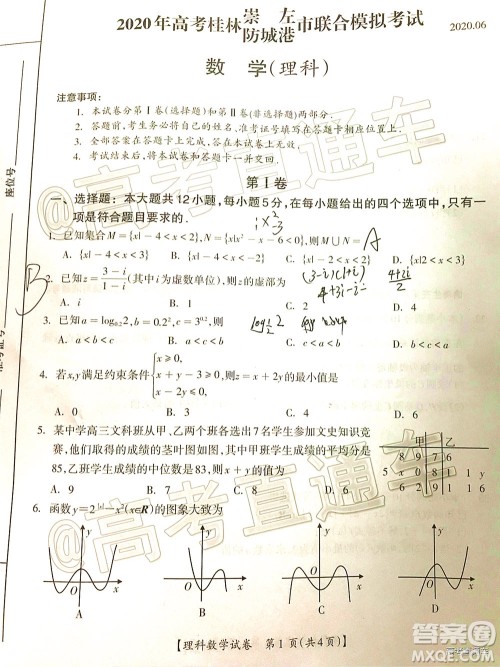 2020年高考桂林 崇左 防城港 市联合模拟考试
2020.06
数 学(理科)
座位号
注意事项:
1. 本试卷分第Ⅰ卷(选择题)和第Ⅱ卷(非选择题)两部分.
2. 答题前,考生务必将姓名、准考证号填写在答题卡相应位置上.
3. 全部答案在答题卡上完成,答在本试卷上无效.
4. 考试结束后,将本试卷和答题卡一并交回.
第Ⅰ卷
一、选择题:本大题共12小题,每小题5分,在每小题给出的四个选项中,只有一
项是符合题目要求的.
1. 已知集合M={x|-4<x<2},N={x|x²-x-6<0},则M∪N=
A
A. {x|-4<x<3} B. {x|-4<x<-2} C. {x|-2<x<2} D. {x|2<x<3}
B
2. 已知z=(3-i)/(1-i)(其中i为虚数单位),则z的虚部为
(3-i)(1+i)
4+2i/2
4+3i-i-
A. i B. 1 C. 2 D.
3. 已知a=log₀.₂2,b=0.2²,c=2⁰·³,则
A. a<b<c B. a<c<b C. c<a<b D. b<c<a
4. 若x,y满足约束条件{x⩾0, x+y-3⩾0, x-2y⩽0, 则z=x+2y的最小值是
A. 0 B. 3 C. 4 D. 6
5. 某中学高三文科班从甲、乙两个班各选出7名学生参加文史知识竞
赛,他们取得的成绩的茎叶图如图,其中甲班学生成绩的平均分是
85,乙班学生成绩的中位数是83,则x+y的值为
A. 9 B. 7 C. 8 D. 6
甲 乙
8 9 7 6
6. 函数y=2^|x|-x²(x∈R)的图象大致为
A B C D
【理科数学试卷 第1页(共4页)】
@高考直通车
@高考直通车
答案圈
MXQE.COM